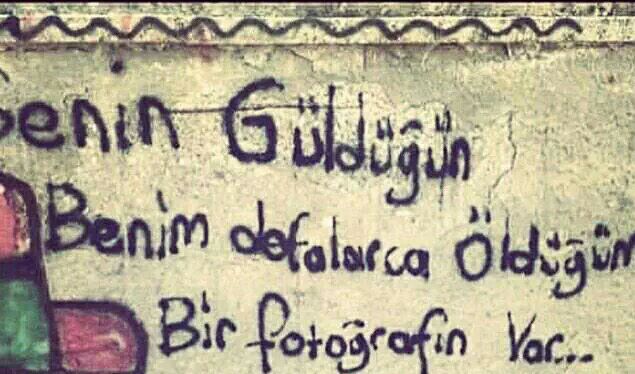 Senin Güldüğün
Benim defalarca Öldüğüm
Bir fotoğrafın Var...